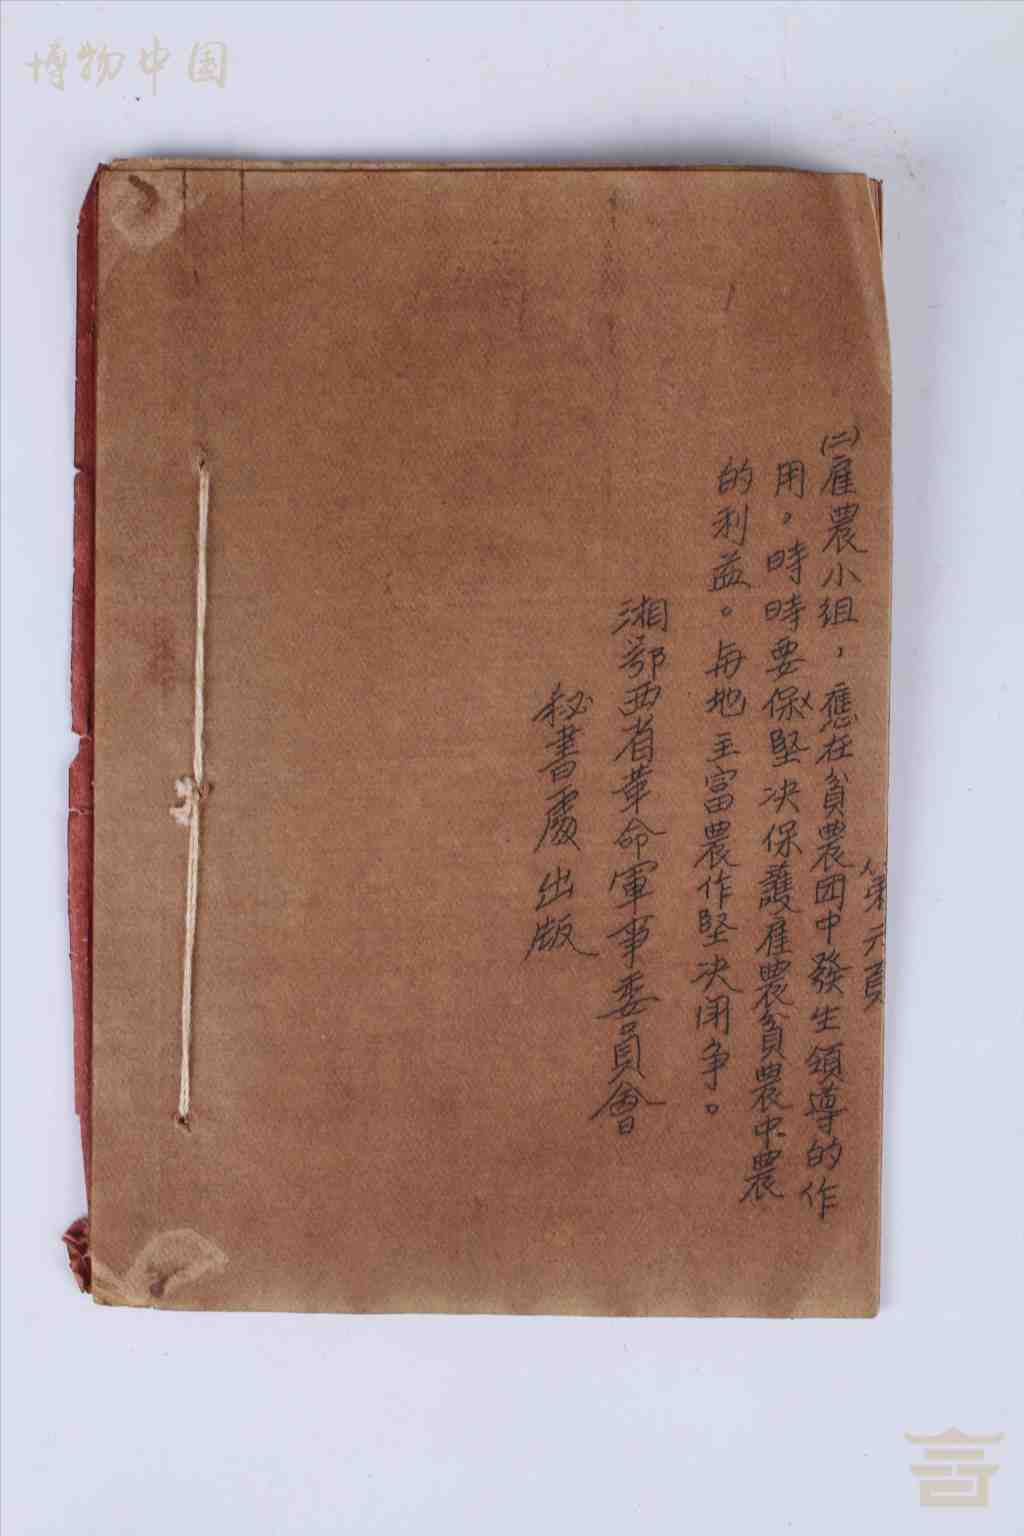 博物中国
第六頁
(二)雇農小组，應在貧農团中發生領導的作
用。時時要保坚决保護雇農貧農中農
的利益。与地主富農作堅决闘争。
湘鄂西省革命軍事委員會
秘書處出版